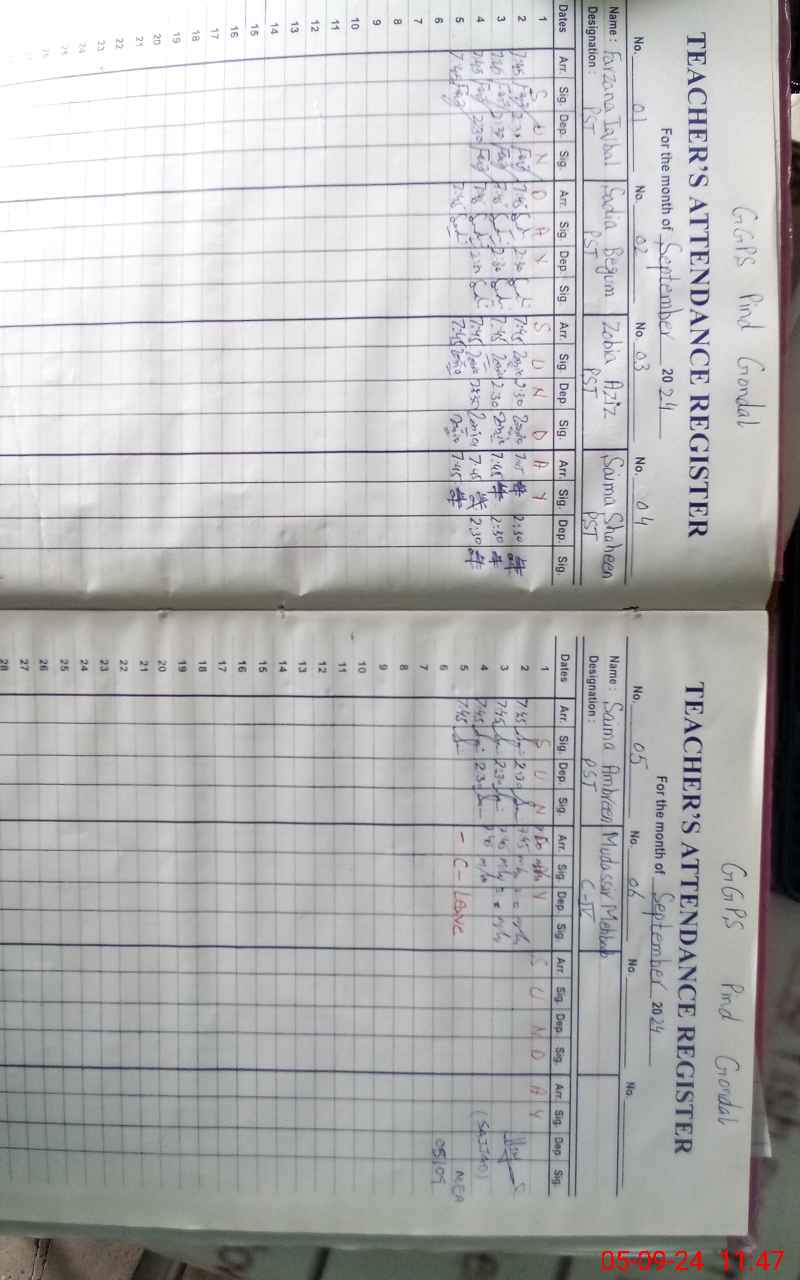 GGPS Pind Gondal
TEACHER'S ATTENDANCE REGISTER
For the month of September 2024
No. 01 No. 02 No. 03 No. 04
Name: Farzana Iqbal Sadia Begum Zobia Aziz Saima Shaheen
Designation: PST PST PST PST
Dates Arr. Sig. Dep. Sig. Arr. Sig. Dep Sig. Arr. Sig. Dep. Sig. Arr. Sig. Dep. Sig.
1 S U N D A Y S U N D A Y
2 7:45 2:30 7:45 2:30 7:45 Zobia 2:30 Zobia 2:30
3 7:45 2:30 7:45 2:30 7:45 Zobia 2:30 Zobia 7:45 2:30
4 7:45 2:30 7:45 2:30 7:45 Zobia 2:30 Zobia 7:45 2:30
5 7:45 7:45 7:45 Zobia Zobia 7:45
6
7
8
9
10
11
12
13
14
15
16
17
18
19
20
21
22
23
24
25
26
27
GGPS Pind Gondal
TEACHER'S ATTENDANCE REGISTER
For the month of September 2024
No. 05 No. 06 No. No.
Name: Saima Ambreen Mudassar Mehboob
Designation: PST C-IV
Dates Arr. Sig. Dep. Sig. Arr. Sig. Dep. Sig. Arr. Sig. Dep. Sig. Arr. Sig. Dep Sig.
1 S U N D A Y S U N D A Y
2 7:45 2:30 7:45
3 7:45 2:30 7:45
4 7:45 2:30 7:45
5 7:45 - C - Leave
(SAJJAD)
MEA
05/09
6
7
8
9
10
11
12
13
14
15
16
17
18
19
20
21
22
23
24
25
26
27
28
05-09-24 11:47